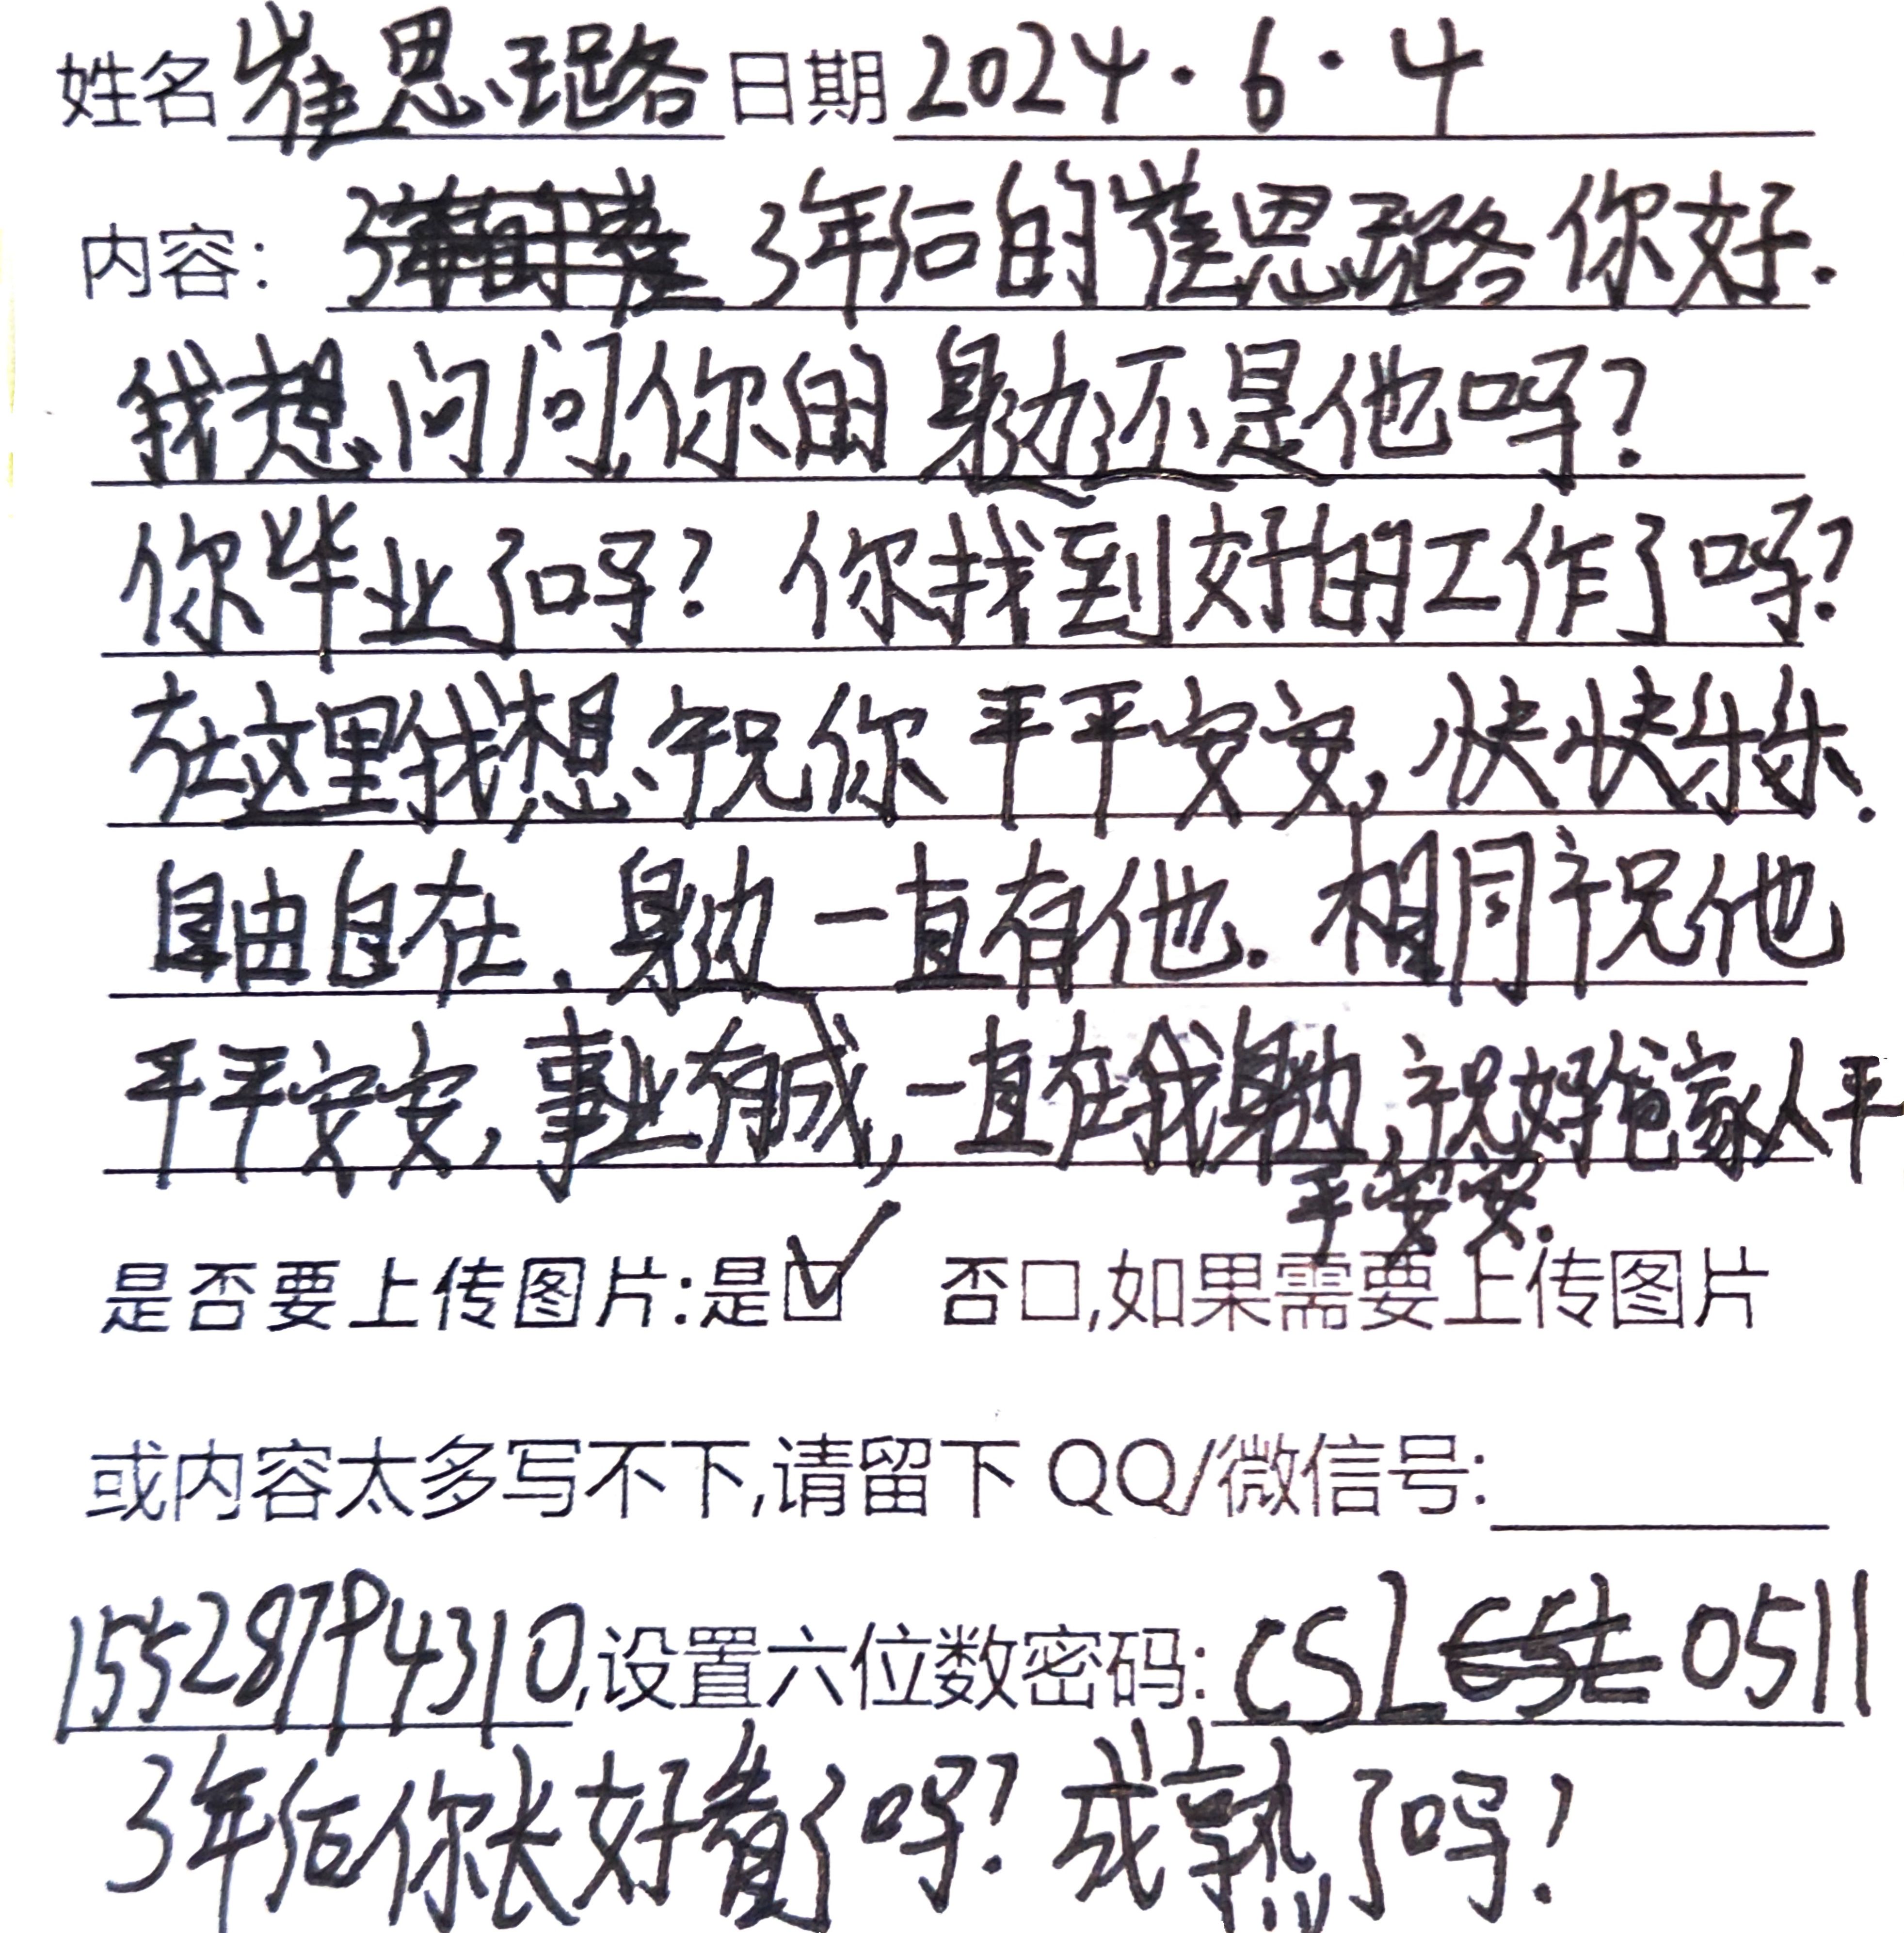 姓名崔思璐日期2024.6.4
内容: 3年后的崔思璐你好.
我想问问,你的身边还是他吗?
你毕业了吗? 你找到好的工作了吗?
在这里我想祝你平平安安,快快乐乐.
自由自在.身边一直有他.相同祝他
平平安安,事业有成,一直在我身边,祝好爸家人平
平安安.
是否要上传图片:是☑ 否口,如果需要上传图片
或内容太多写不下,请留下 QQ/微信号:
15528794310,设置六位数密码:CSL0511
3年后你长好看了吗?成熟了吗?